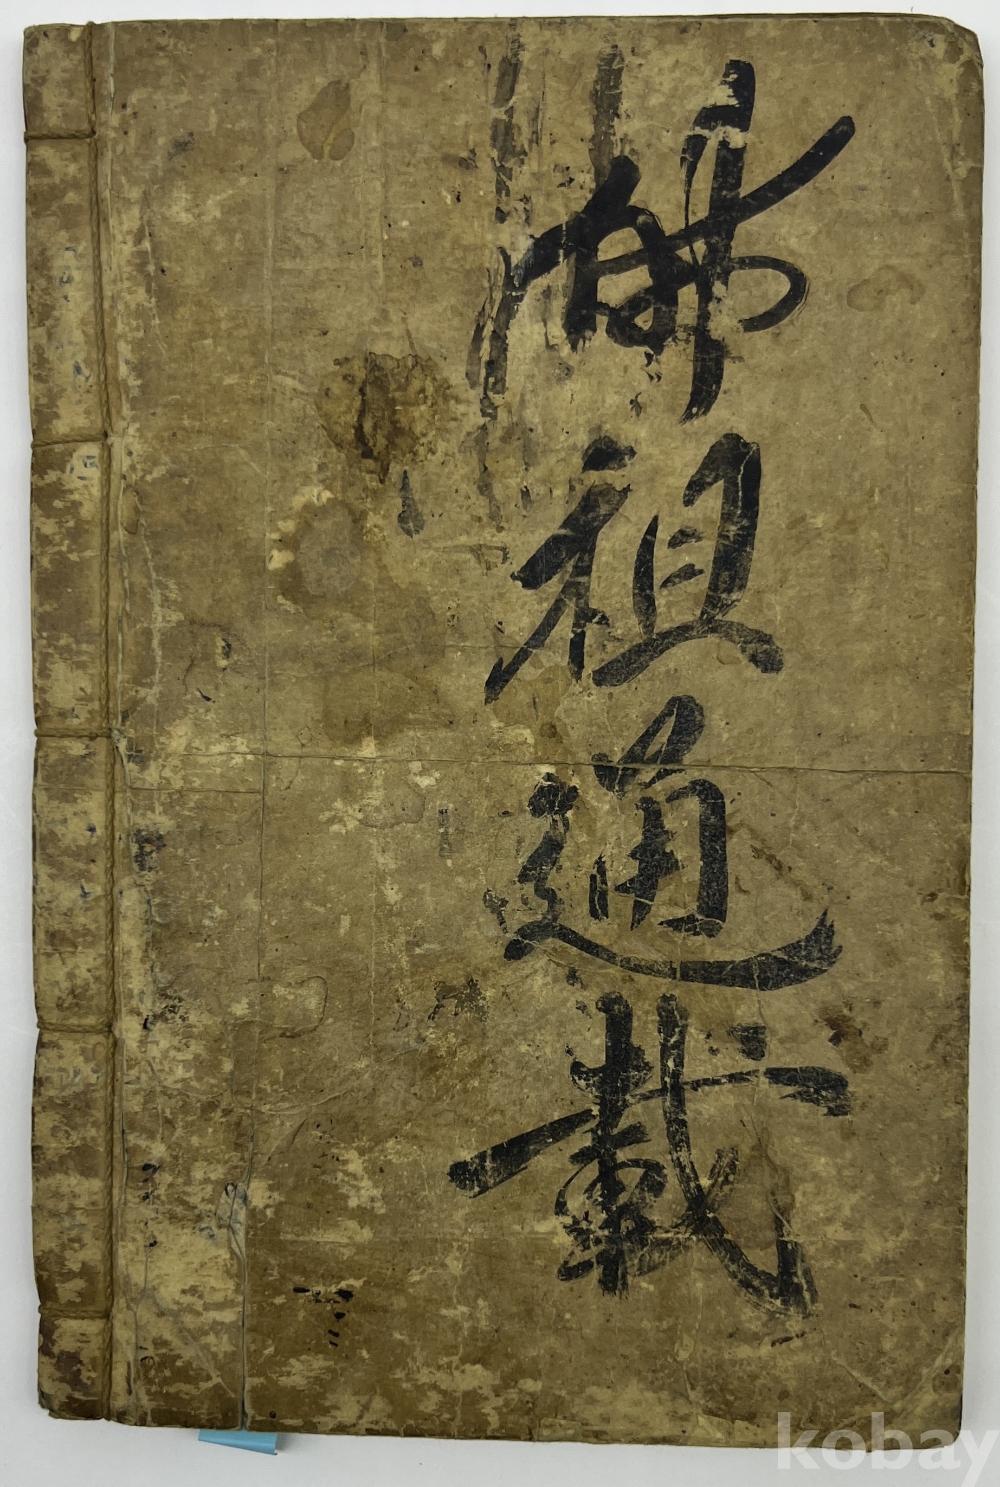 佛祖通載
kobay